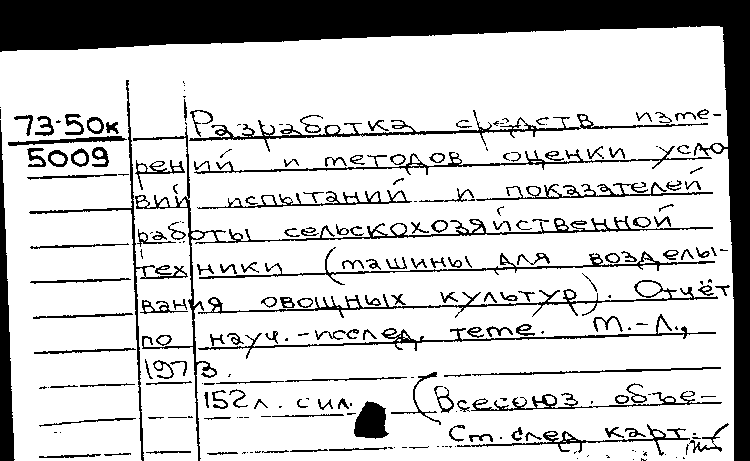 73-50к
5009
Разработка средств изме-
рений и методов оценки усло
вий испытаний и показателей
работы сельскохозяйственной
техники (машины для возделы-
вания овощных культур). Отчёт
по науч.-исслед. теме. М.-Л.,
1973.
152л. сил.
(Всесоюз. объе-
См. след. карт.